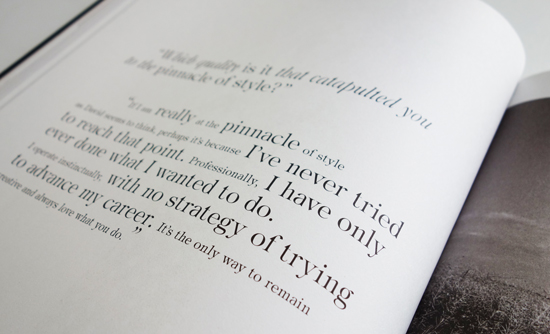 "Which quality is it that catapulted you
to the pinnacle of style?"
"If I am really at the pinnacle of style
as David seems to think, perhaps it's because I've never tried
to reach that point. Professionally, I have only
ever done what I wanted to do.
I operate instinctually, with no strategy of trying
to advance my career. It's the only way to remain
creative and always love what you do."